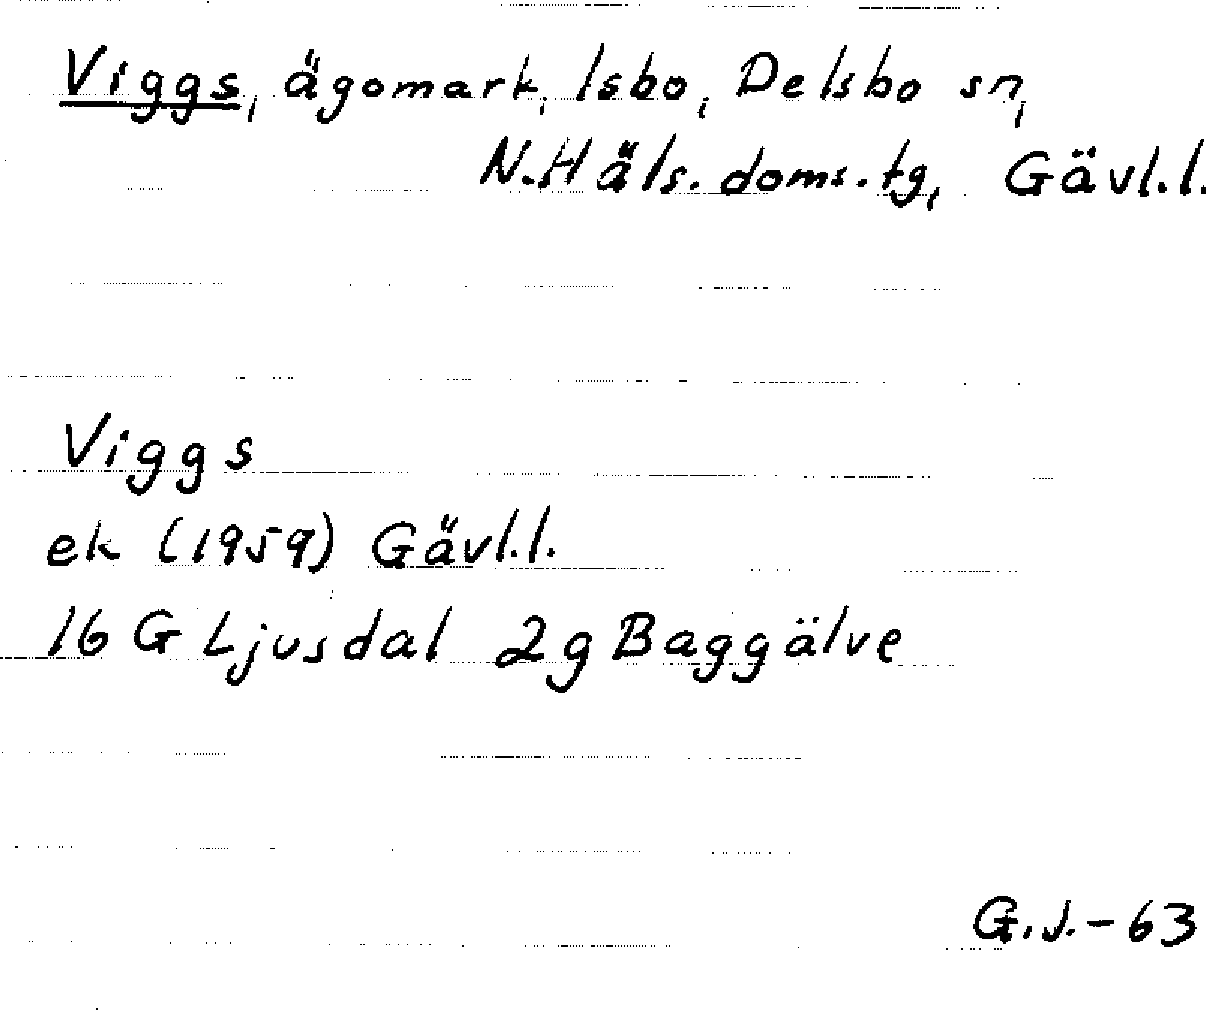 Viggs, ägomark, Isbo, Delsbo sn,
N.Häls.doms.tg, Gävl.l.
Viggs
ek (1959) Gävl.l.
16 G Ljusdal 2g Baggälve
G.J.-63